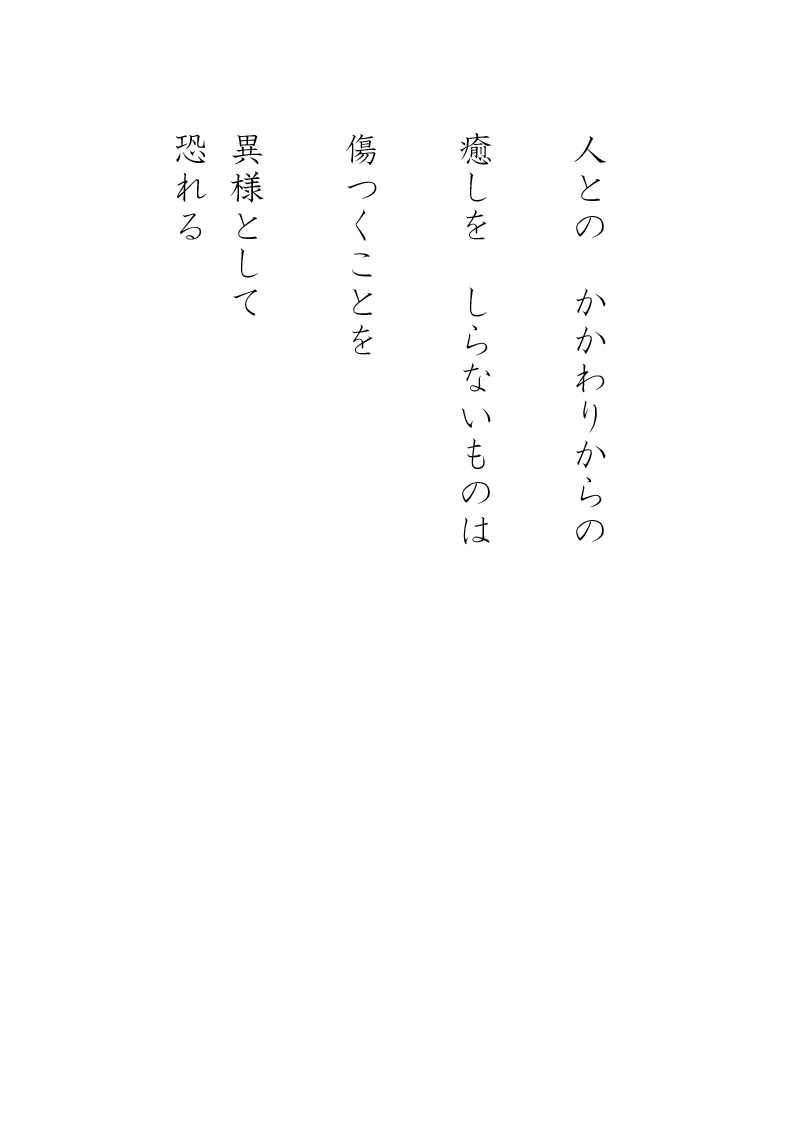 人との　かかわりからの
癒しを　しらないものは
傷つくことを
異様として
恐れる